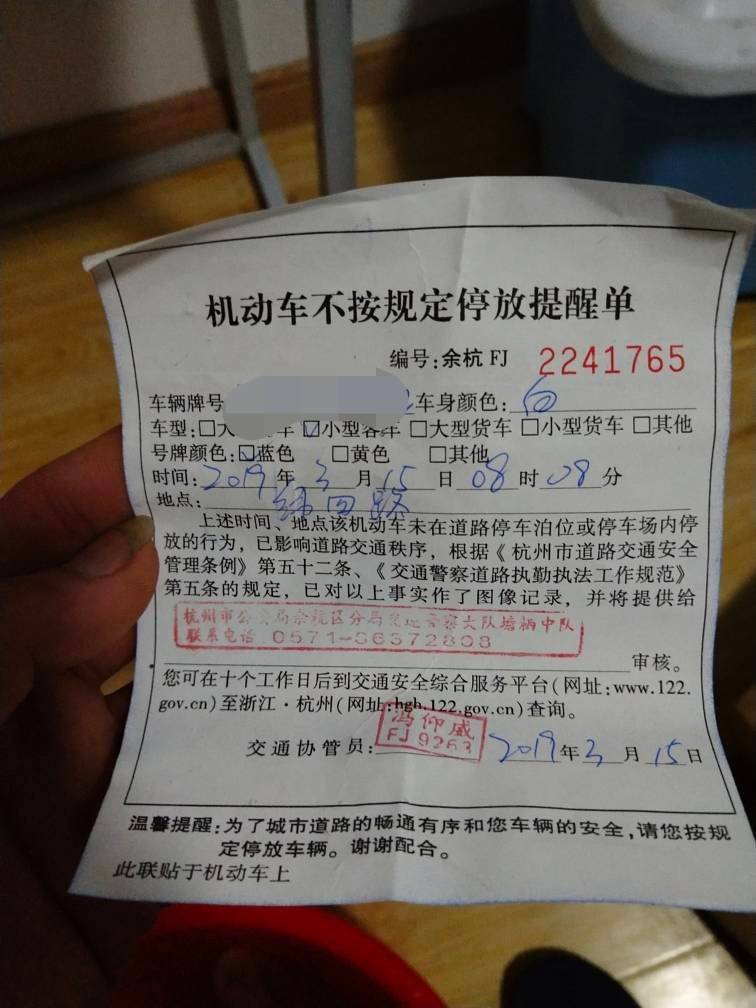 机动车不按规定停放提醒单
编号:余杭 FJ 2241765
车辆牌号 车身颜色:白
车型:□大 车 ☑小型客车 □大型货车 □小型货车 □其他
号牌颜色:☑蓝色 □黄色 □其他
时间:2019年3月15日08时08分
地点:纬四路
上述时间、地点该机动车未在道路停车泊位或停车场内停
放的行为，已影响道路交通秩序，根据《杭州市道路交通安全
管理条例》第五十二条、《交通警察道路执勤执法工作规范》
第五条的规定，已对以上事实作了图像记录，并将提供给
杭州市公安局余杭区分局交通警察大队塘栖中队
联系电话 0571-86372808
审核。
您可在十个工作日后到交通安全综合服务平台(网址:www.122.
gov.cn)至浙江·杭州(网址:hgh.122.gov.cn)查询。
冯仰威
FJ 9263
交通协管员: 2019年3月15日
温馨提醒:为了城市道路的畅通有序和您车辆的安全,请您按规
定停放车辆。谢谢配合。
此联贴于机动车上